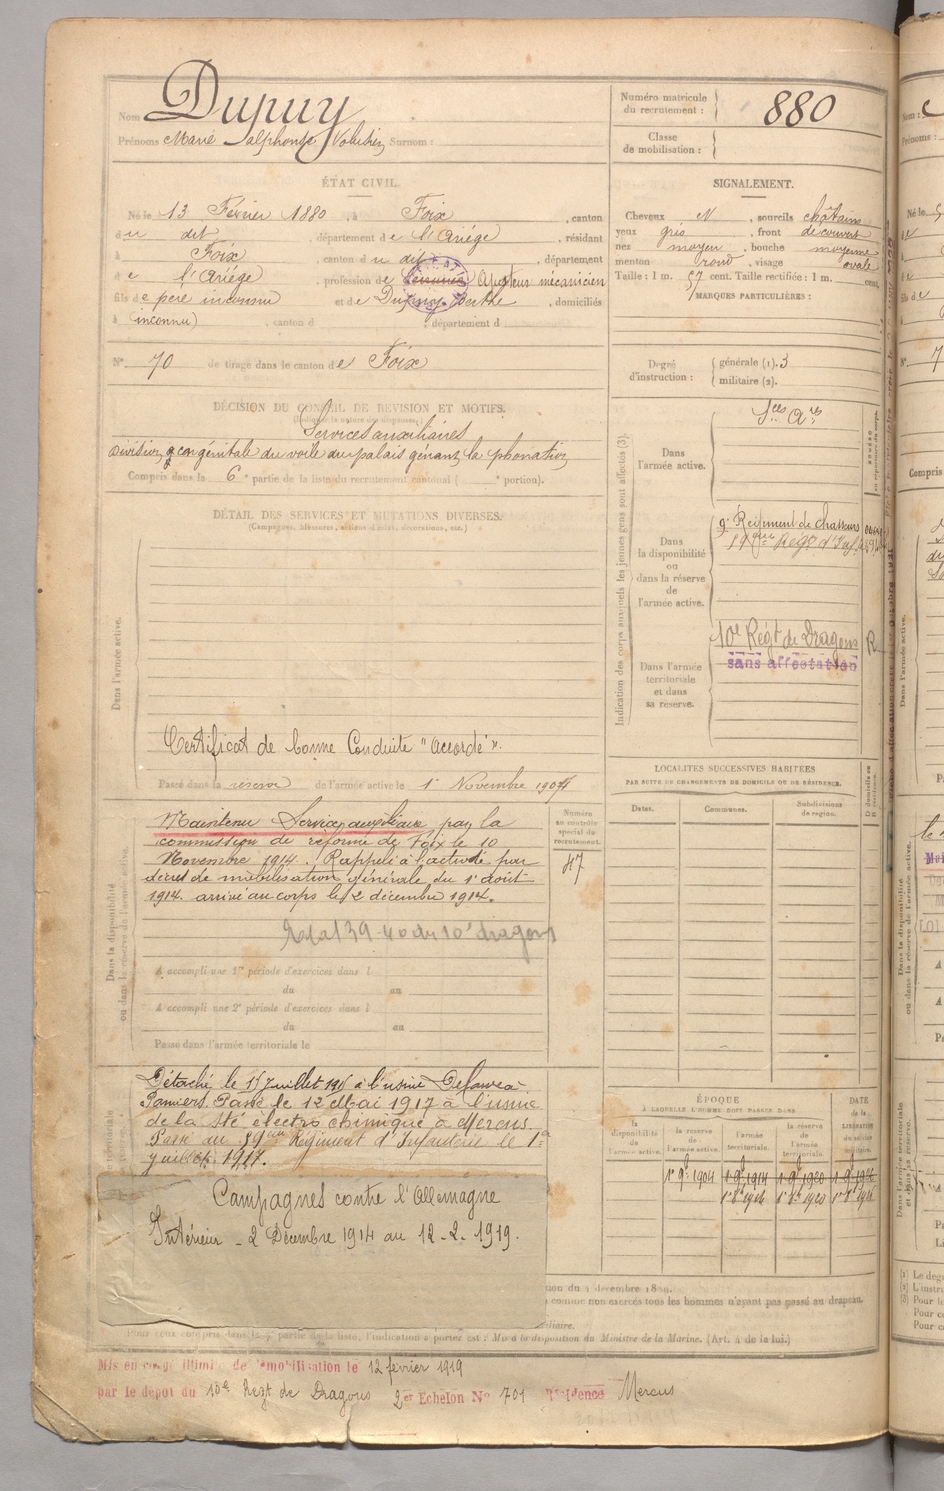 Nom Dupuy
Prénoms Marie Alphonse Volusien Surnom :
Numéro matricule
du recrutement :
880
Classe
de mobilisation :
ÉTAT CIVIL.
Né le 13 Février 1880, à Foix, canton
du dit, département de l'Ariége, résidant
à Foix, canton du dit, département
de l'Ariége, profession de Ajusteur mécanicien
fils de père inconnu et de Dupuy Berthe, domiciliés
à (inconnu), canton d , département d
N° 70 de tirage dans le canton de Foix
SIGNALEMENT.
Cheveux N, sourcils châtains
yeux gris, front découvert
nez moyen, bouche moyenne
menton rond, visage ovale
Taille : 1 m. 57 cent. Taille rectifiée : 1 m. cent.
MARQUES PARTICULIÈRES :
Degré
d'instruction :
générale (1). 3
militaire (2).
DÉCISION DU CONSEIL DE REVISION ET MOTIFS.
Services auxiliaires
Division congénitale du voile du palais gênant la phonation
Compris dans la 6e partie de la liste du recrutement cantonal ( e portion).
DÉTAIL DES SERVICES ET MUTATIONS DIVERSES.
(Campagnes, blessures, actions d'éclat, décorations, etc.)
Dans l'armée active.
Certificat de bonne Conduite "accordé".
Passé dans la réserve de l'armée active le 1er Novembre 1904
Indication des corps auxquels les jeunes gens sont affectés (3).
Dans
l'armée active.
Dans
la disponibilité
ou
dans la réserve
de
l'armée active.
9e Régiment de chasseurs
Dans l'armée
territoriale
et dans
sa réserve.
10e Regt de Dragons
sans affectation
LOCALITÉS SUCCESSIVES HABITÉES
PAR SUITE DE CHANGEMENTS DE DOMICILE OU DE RÉSIDENCE.
Dates.
Communes.
Subdivisions
de région.
Dans la disponibilité
ou dans la réserve de l'armée active.
Maintenu Services auxiliaires par la
commission de réforme de Foix le 10
Novembre 1914. Rappelé à l'activité par
décret de mobilisation générale du 1er Août
1914. arrivé au corps le 2 décembre 1914.
Numéro
au contrôle
spécial du
recrutement.
47
A accompli une 1re période d'exercices dans l
du au
A accompli une 2e période d'exercices dans l
du au
Passé dans l'armée territoriale le
à l'usine
Pamiers. Passé le 12 Mai 1917 à l'usine
de la Sté électro chimique à Mercus.
Passé au Régiment d'Infanterie le 1er
juillet 1917.
ÉPOQUE
À LAQUELLE L'HOMME DOIT PASSER DANS
la
disponibilité
de
l'armée active.
la réserve
de
l'armée active.
l'armée
territoriale.
la réserve
de l'armée
territoriale.
DATE
de la
LIBÉRATION
du service
militaire.
Campagnes contre l'Allemagne
Intérieur - 2 Décembre 1914 au 12-2-1919.
comme non exercés tous les hommes n'ayant pas passé au drapeau.
Pour ceux compris dans la partie de la liste, l'indication à porter est : Mis à la disposition du Ministre de la Marine. (Art. 4 de la loi.)
Mis en congé illimité de démobilisation le 12 février 1919
par le dépôt du 10e Regt de Dragons 2er Echelon N° 701 Résidence Mercus